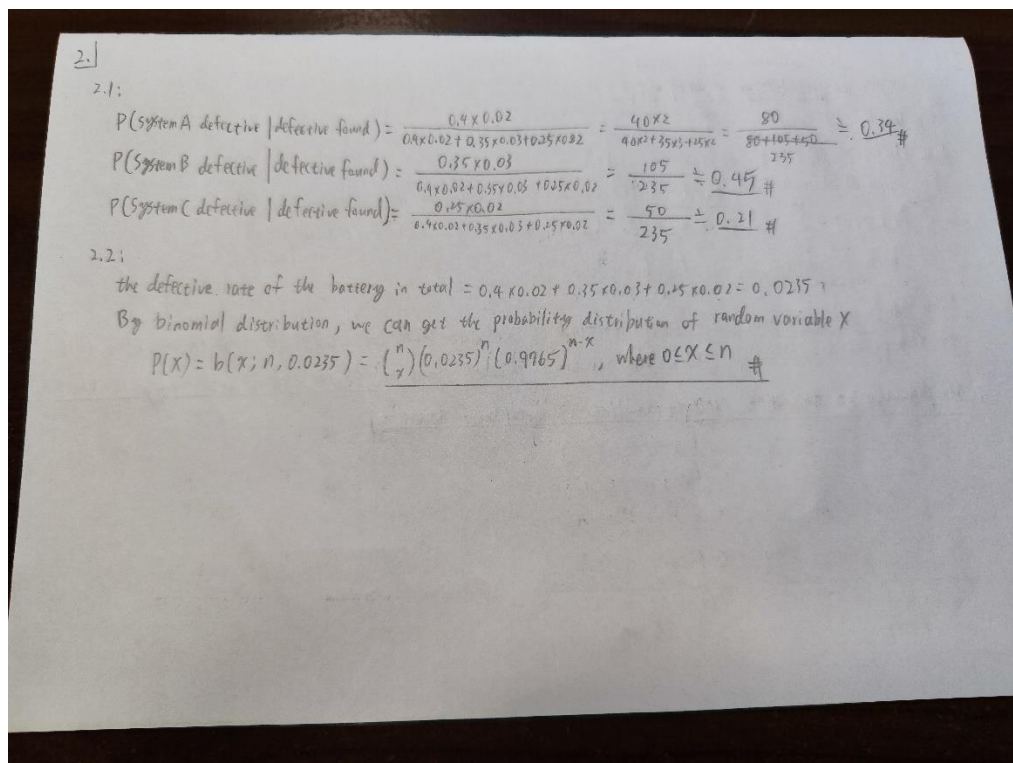 2.
2.1:
P(System A defective | defective found) = 0.4×0.02 / 0.4×0.02+0.35×0.03+0.25×0.02 = 40×2 / 40×2+35×3+25×2 = 80 / 80+105+50 ≒ 0.34 #
235
P(System B defective | defective found) = 0.35×0.03 / 0.4×0.02+0.35×0.03+0.25×0.02 = 105 / 235 ≒ 0.45 #
P(System C defective | defective found) = 0.25×0.02 / 0.4×0.02+0.35×0.03+0.25×0.02 = 50 / 235 ≒ 0.21 #
2.2:
the defective rate of the battery in total = 0.4×0.02+0.35×0.03+0.25×0.02 = 0.0235
By binomial distribution, we can get the probability distribution of random variable X
P(X) = b(x; n, 0.0235) = (n x)(0.0235)^n (0.9765)^n-x, where 0≤X≤n #